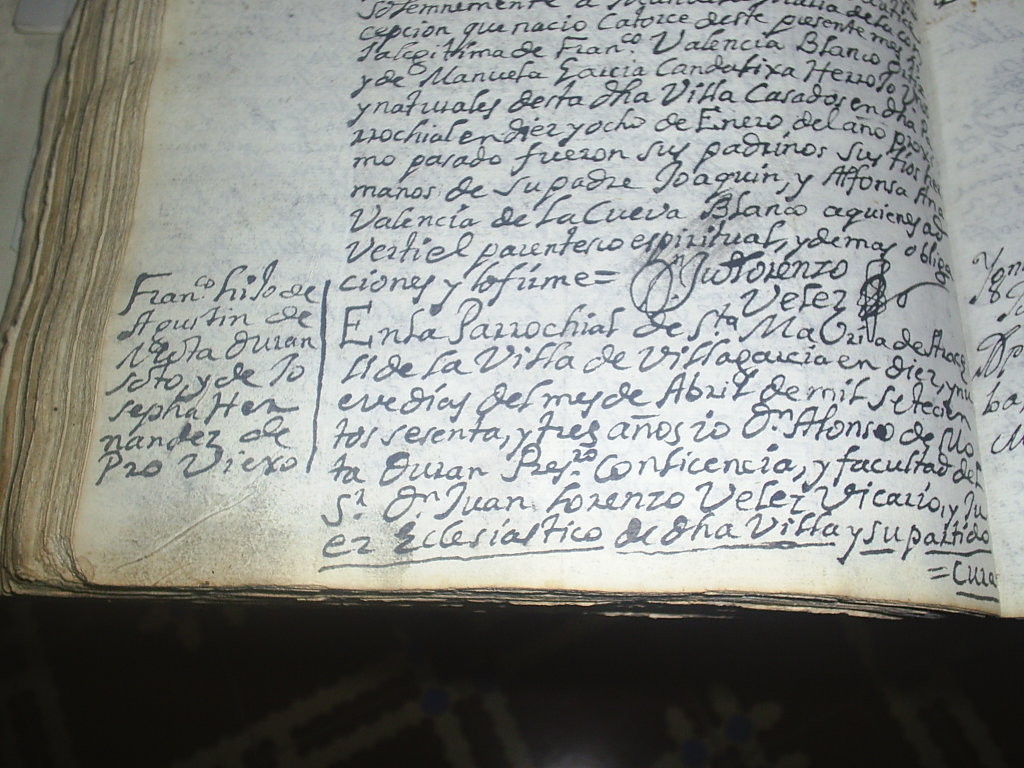 solemnemente a
cepcion que nacio Catorce deste presente mes
Ja legitima de Fran.co Valencia Blanco
y de Manuela Garcia Candatixa Herroso
y naturales desta dha Villa Casados en dha
rrochial en diez y ocho de Enero, del año proxi
mo pasado fueron sus padrinos sus tios her
manos de su padre Joaquin, y Alfonsa Ana
Valencia de la Cueva Blanco a quienes ad
verti el parentesco espiritual, y demas obliga
ciones y lo firme =
Dn Ju Lorenzo
Velez
Fran.co hijo de
Agustin de
duran
soto, y de Jo
sepha Her
nandez de
Pro Viexo
En la Parrochial de Sta Ma de Arace
li de la Villa de Villagarcia en diez, y nu
eve dias del mes de Abril de mil setecien
tos sesenta, y tres años io Dn Alfonso de
ta Duran Pres.ro Con licencia, y facultad del
Sr. Dn Juan Lorenzo Velez Vicario, y Ju
ez Eclesiastico de dha Villa y su partido
= Cura